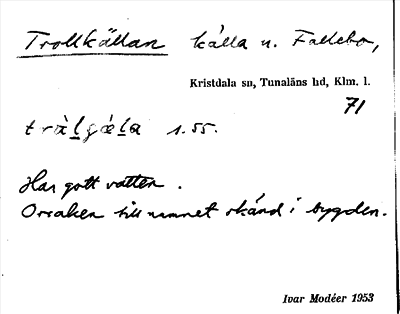 Trollkällan källa n. Fallebo,
Kristdala sn, Tunaläns hd, Klm. l.
71
1.55.
Har gott vatten.
Orsaken till namnet okänd i bygden.
Ivar Modéer 1953